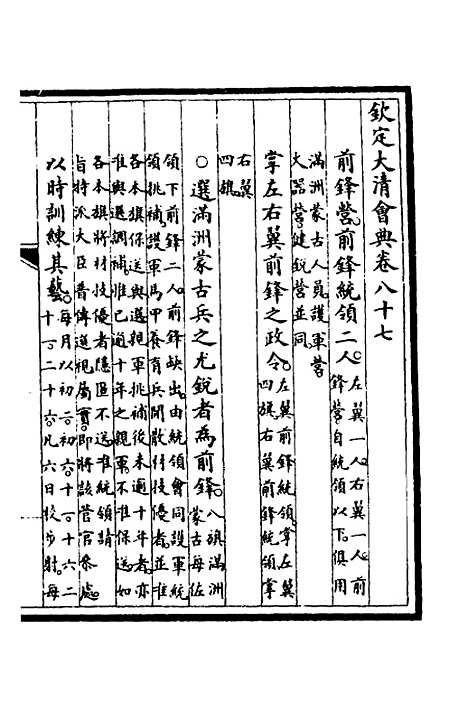 欽定大清會典卷八十七
前鋒營前鋒統領二人左翼一人右翼一人前
鋒營自統領以下俱用
滿洲蒙古人員護軍營
火器營健銳營並同
掌左右翼前鋒之政令左翼前鋒統領掌左翼
四旗右翼前鋒統領掌
右翼
四旗
○選滿洲蒙古兵之尤銳者為前鋒八旗滿洲
蒙古每佐
領下前鋒二人前鋒缺出由統領會同護軍統
領挑補護軍馬甲養育兵閒散材技優者並准
各本旗保送與選親軍挑補後未逾十年者亦
准與選調補惟已逾十年之親軍不准保送如
各本旗將材技優者隱匿不送准統領請
旨特派大臣普傳選視屬實即將該管官參處
以時訓練其藝每月以初二初六十一十六二
十一二十六凡六日校步射每